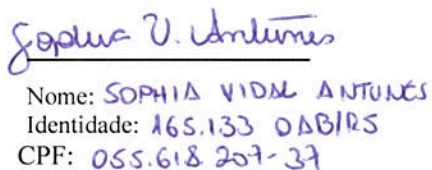 Sophia V. Antunes
Nome: SOPHIA VIDAL ANTUNES
Identidade: 165.133 OAB/RS
CPF: 055.618.207-37